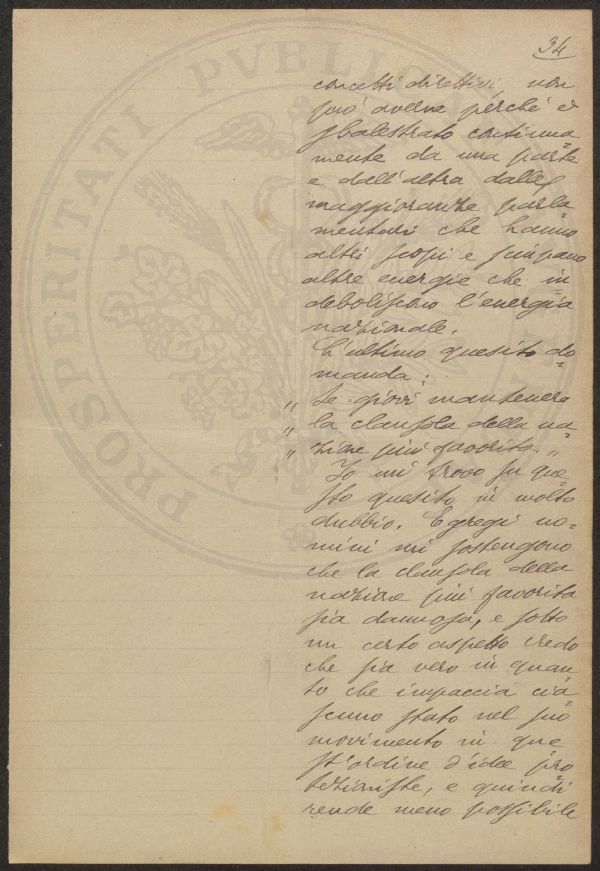 34
PROSPERITATI PVBLIC
concetti direttivi non
può averne perchè è
sbalestrato continua=
mente da una parte
e dall'altra dalle
maggioranze parla=
mentari che hanno
altri scopi e
altre energie che in=
deboliscono l'energia
nazionale.
L'ultimo quesito do=
manda:
„ Se giovi mantenere
„ la clausola della na=
„ zione più favorita. „
Io mi trovo su que=
sto quesito in molto
dubbio. Egregi uo=
mini mi sostengono
che la clausola della
nazione più favorita
sia dannosa, e sotto
un certo aspetto credo
che sia vero in quan=
to che impaccia cia=
scuno stato nel suo
movimento in que=
st'ordine d'idee pro=
tezioniste, e quindi
rende meno possibile